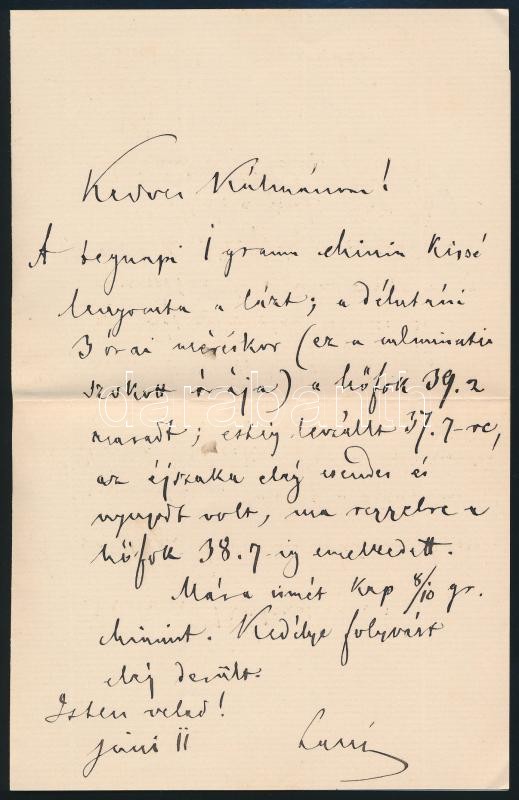 Kedves Kálmánom!
A tegnapi 1 gramm chinin kissé
lenyomta a lázt; a délutáni
3 órai méréskor (ez a culminatio
szokott órája) a hőfok 39.2
maradt; estig leszállt 37.7-re,
az éjszaka elég csendes és
nyugodt volt, ma reggelre a
hőfok 38.7-ig emelkedett.
Mára ismét kap 8/10 gr.
chinint. Kedélye folyvást
elég derült.
Isten veled!
júni 11
darabanth